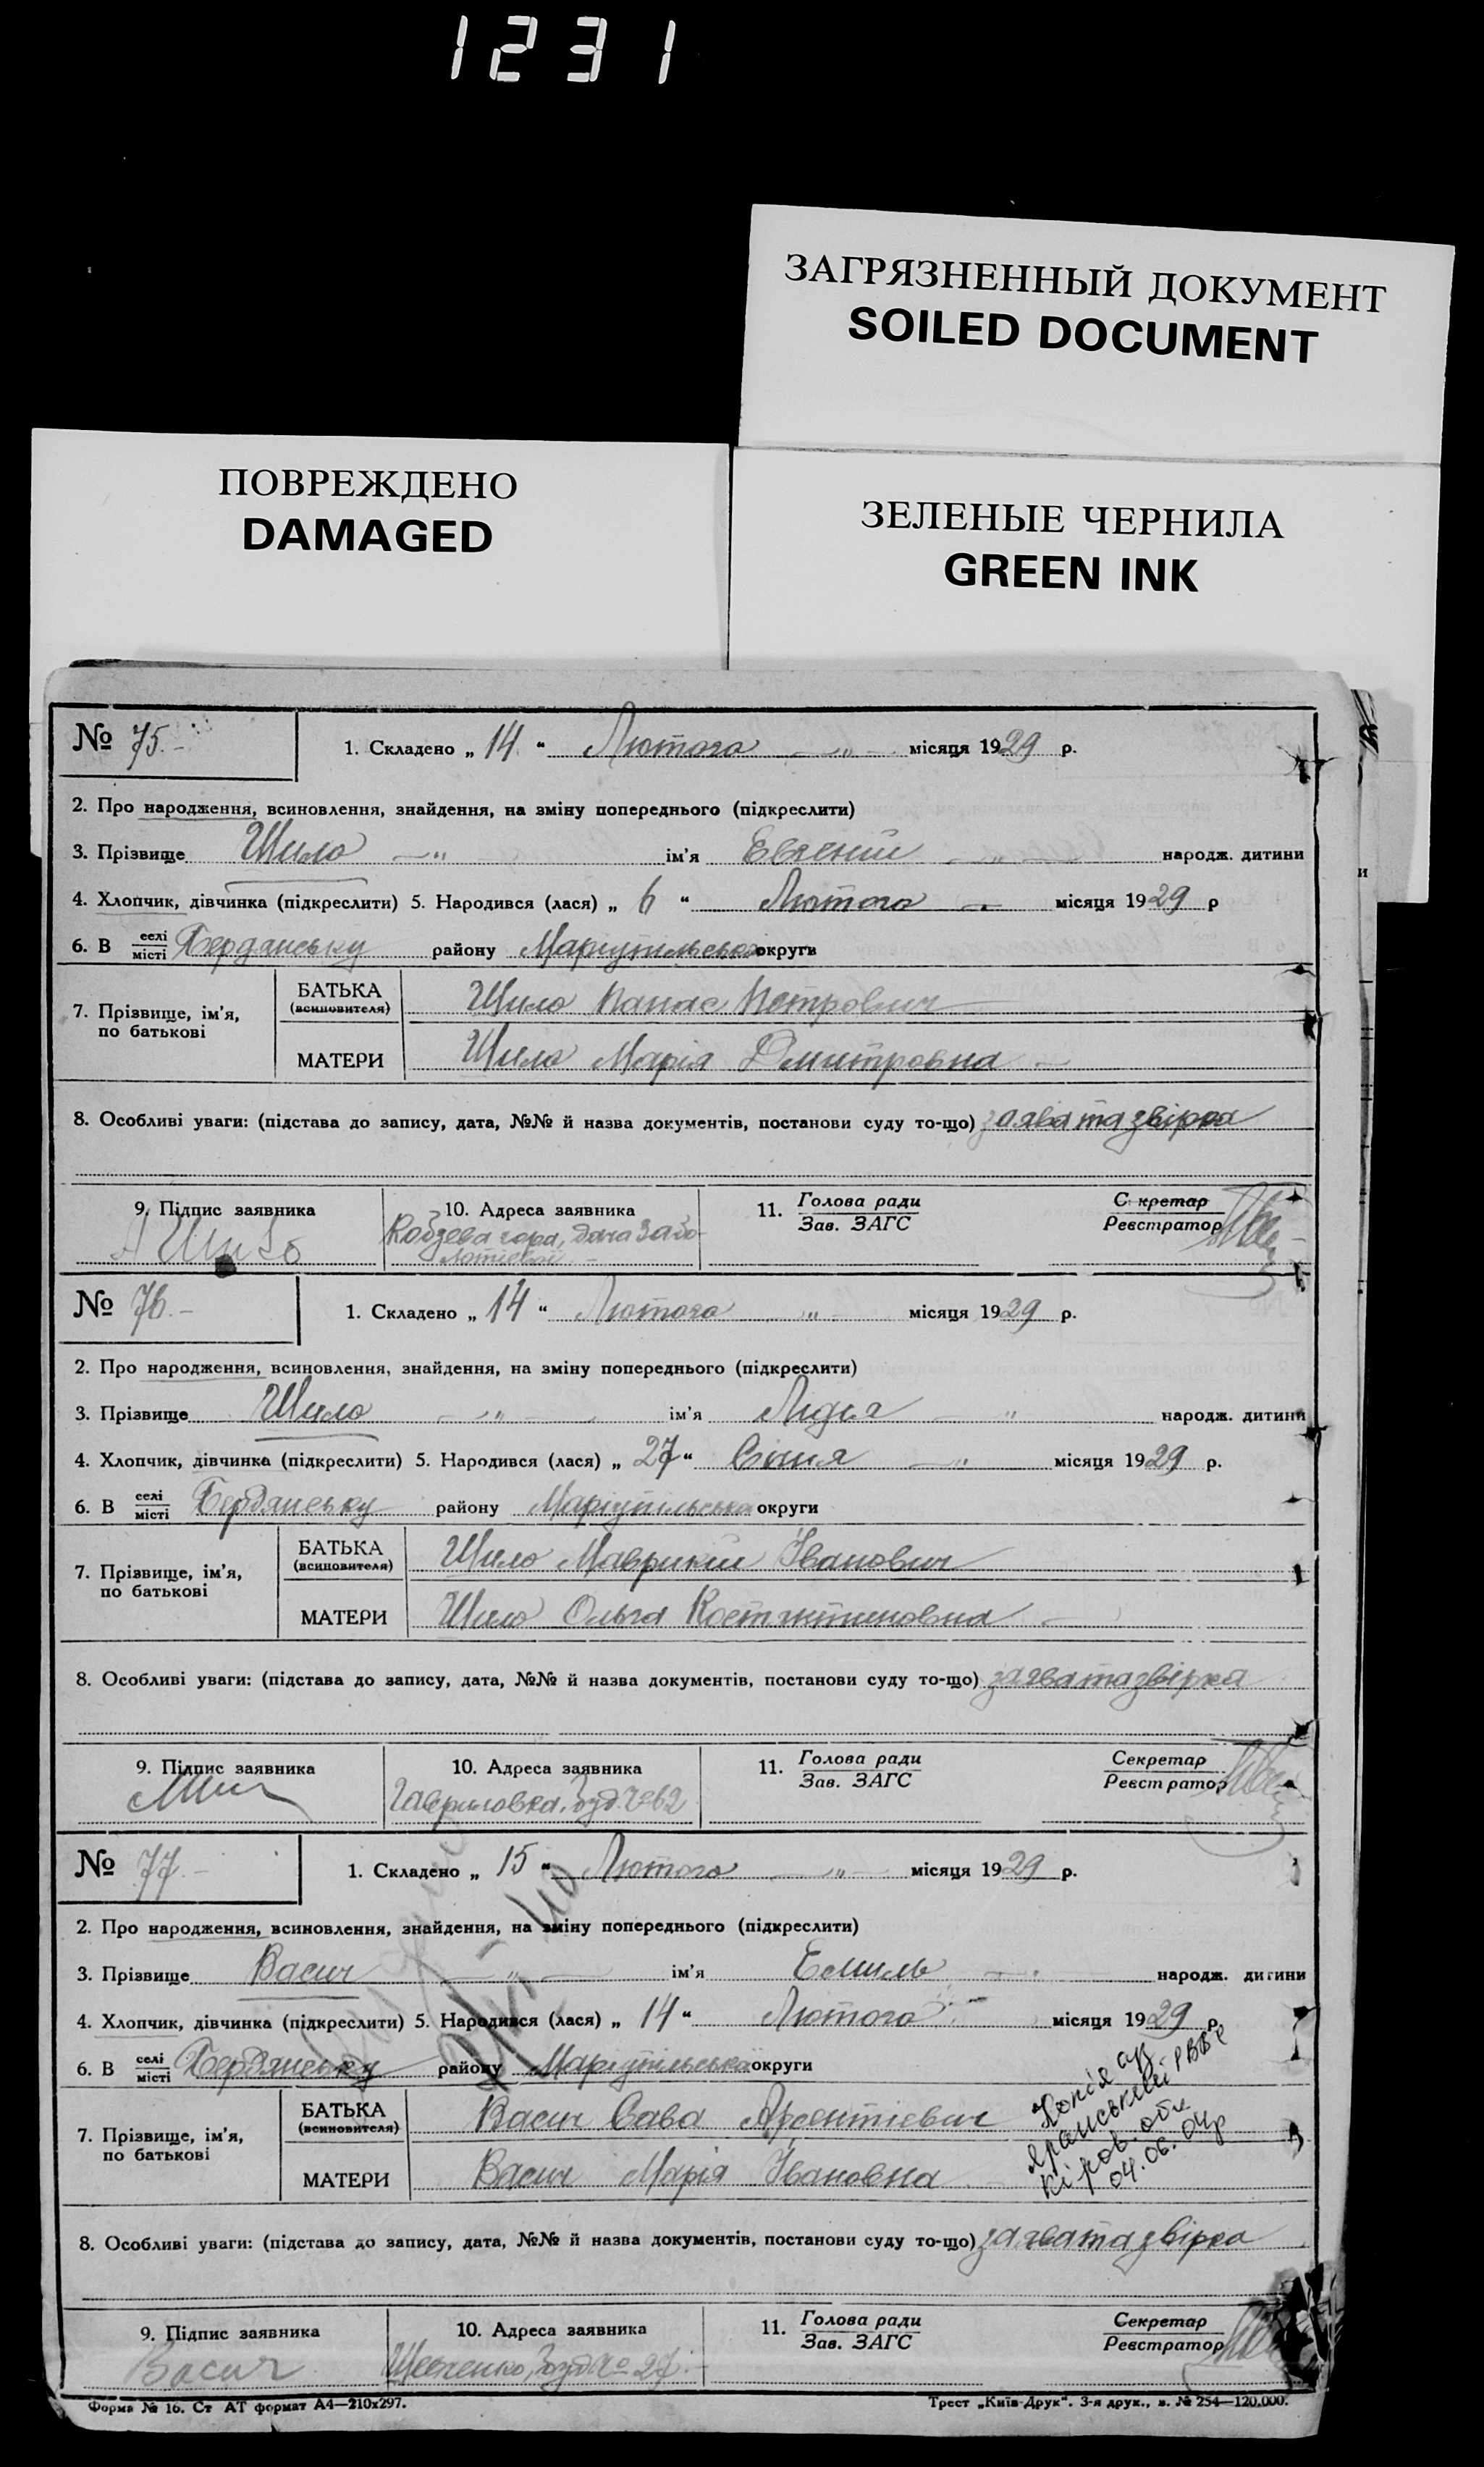 1231
ЗАГРЯЗНЕННЫЙ ДОКУМЕНТ
SOILED DOCUMENT
ПОВРЕЖДЕНО
DAMAGED
ЗЕЛЕНЫЕ ЧЕРНИЛА
GREEN INK
№ 75.- 1. Складено „ 14 “ Лютого — „ — місяця 1929 р.
2. Про народження, всиновлення, знайдення, на зміну попереднього (підкреслити)
3. Прізвище Шило — „ ім'я Евгеній — „ — народж. дитини
4. Хлопчик, дівчинка (підкреслити) 5. Народився (лася) „ 6 “ Лютого — місяця 1929 р
6. В селі/місті Бердянську району Маріупільська округи
7. Прізвище, ім'я, по батькові БАТЬКА (всиновителя) Шило Панас Петрович
МАТЕРИ Шило Марія Дмитровна
8. Особливі уваги: (підстава до запису, дата, №№ й назва документів, постанови суду то-що) заява та звірка
9. Підпис заявника 10. Адреса заявника 11. Голова ради / Зав. ЗАГС Секретар / Реєстратор
Шило Кобзева гора, дача Забо-
лотіевой
№ 76.- 1. Складено „ 14 “ Лютого „ місяця 1929 р.
2. Про народження, всиновлення, знайдення, на зміну попереднього (підкреслити)
3. Прізвище Шило — „ — ім'я Лидия — „ народж. дитини
4. Хлопчик, дівчинка (підкреслити) 5. Народився (лася) „ 27 “ Січня — „ місяця 1929 р.
6. В селі/місті Бердянську району Маріупільська округи
7. Прізвище, ім'я, по батькові БАТЬКА (всиновителя) Шило Маврикій Іванович
МАТЕРИ Шило Ольга Костянтиновна
8. Особливі уваги: (підстава до запису, дата, №№ й назва документів, постанови суду то-що) заява та звірка
9. Підпис заявника 10. Адреса заявника 11. Голова ради / Зав. ЗАГС Секретар / Реєстратор
Гавриловка, буд. № 62
№ 77.- 1. Складено „ 15 “ Лютого — „ — місяця 1929 р.
2. Про народження, всиновлення, знайдення, на зміну попереднього (підкреслити)
3. Прізвище Васич — „ — ім'я Емиль народж. дитини
4. Хлопчик, дівчинка (підкреслити) 5. Народився (лася) „ 14 “ Лютого місяця 1929 р.
6. В селі/місті Бердянську району Маріупільська округи
7. Прізвище, ім'я, по батькові БАТЬКА (всиновителя) Васич Сава Арсентієвич
МАТЕРИ Васич Марія Івановна
Копія
04.06.04р
8. Особливі уваги: (підстава до запису, дата, №№ й назва документів, постанови суду то-що) заява та звірка
9. Підпис заявника 10. Адреса заявника 11. Голова ради / Зав. ЗАГС Секретар / Реєстратор
Васич Шевченко, буд № 27.-
Форма № 16. Ст АТ формат А4—210х297. Трест „Київ-Друк“. 3-я друк., з. № 254—120.000.